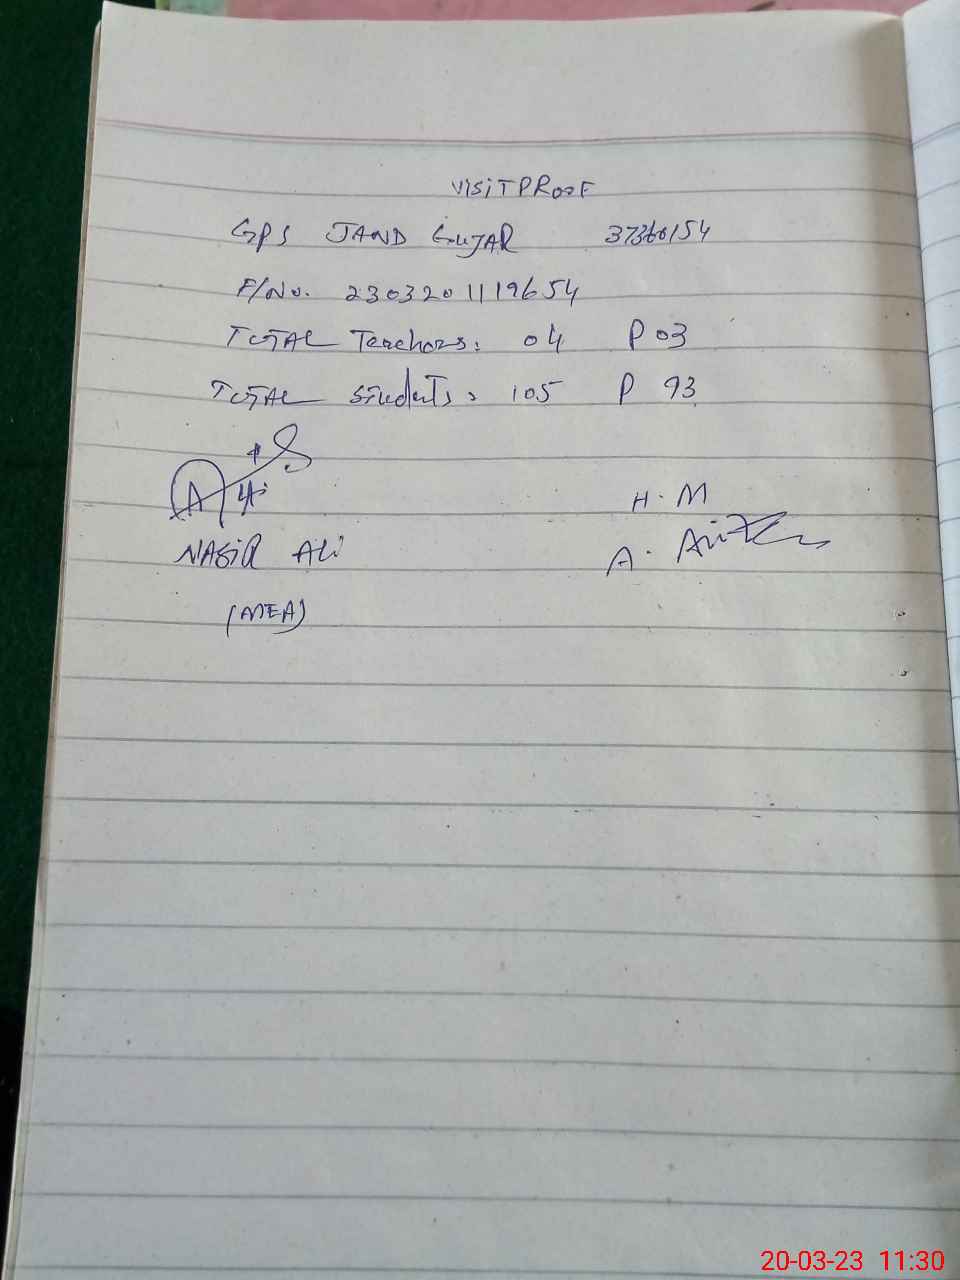 VISIT PROOF
GPS JAND GUJAR 37360154
F/No. 2303201119654
TOTAL Teachers: 04 P 03
TOTAL Students: 105 P 93
H.M
NASIR ALI
A.
(MEA)
20-03-23 11:30